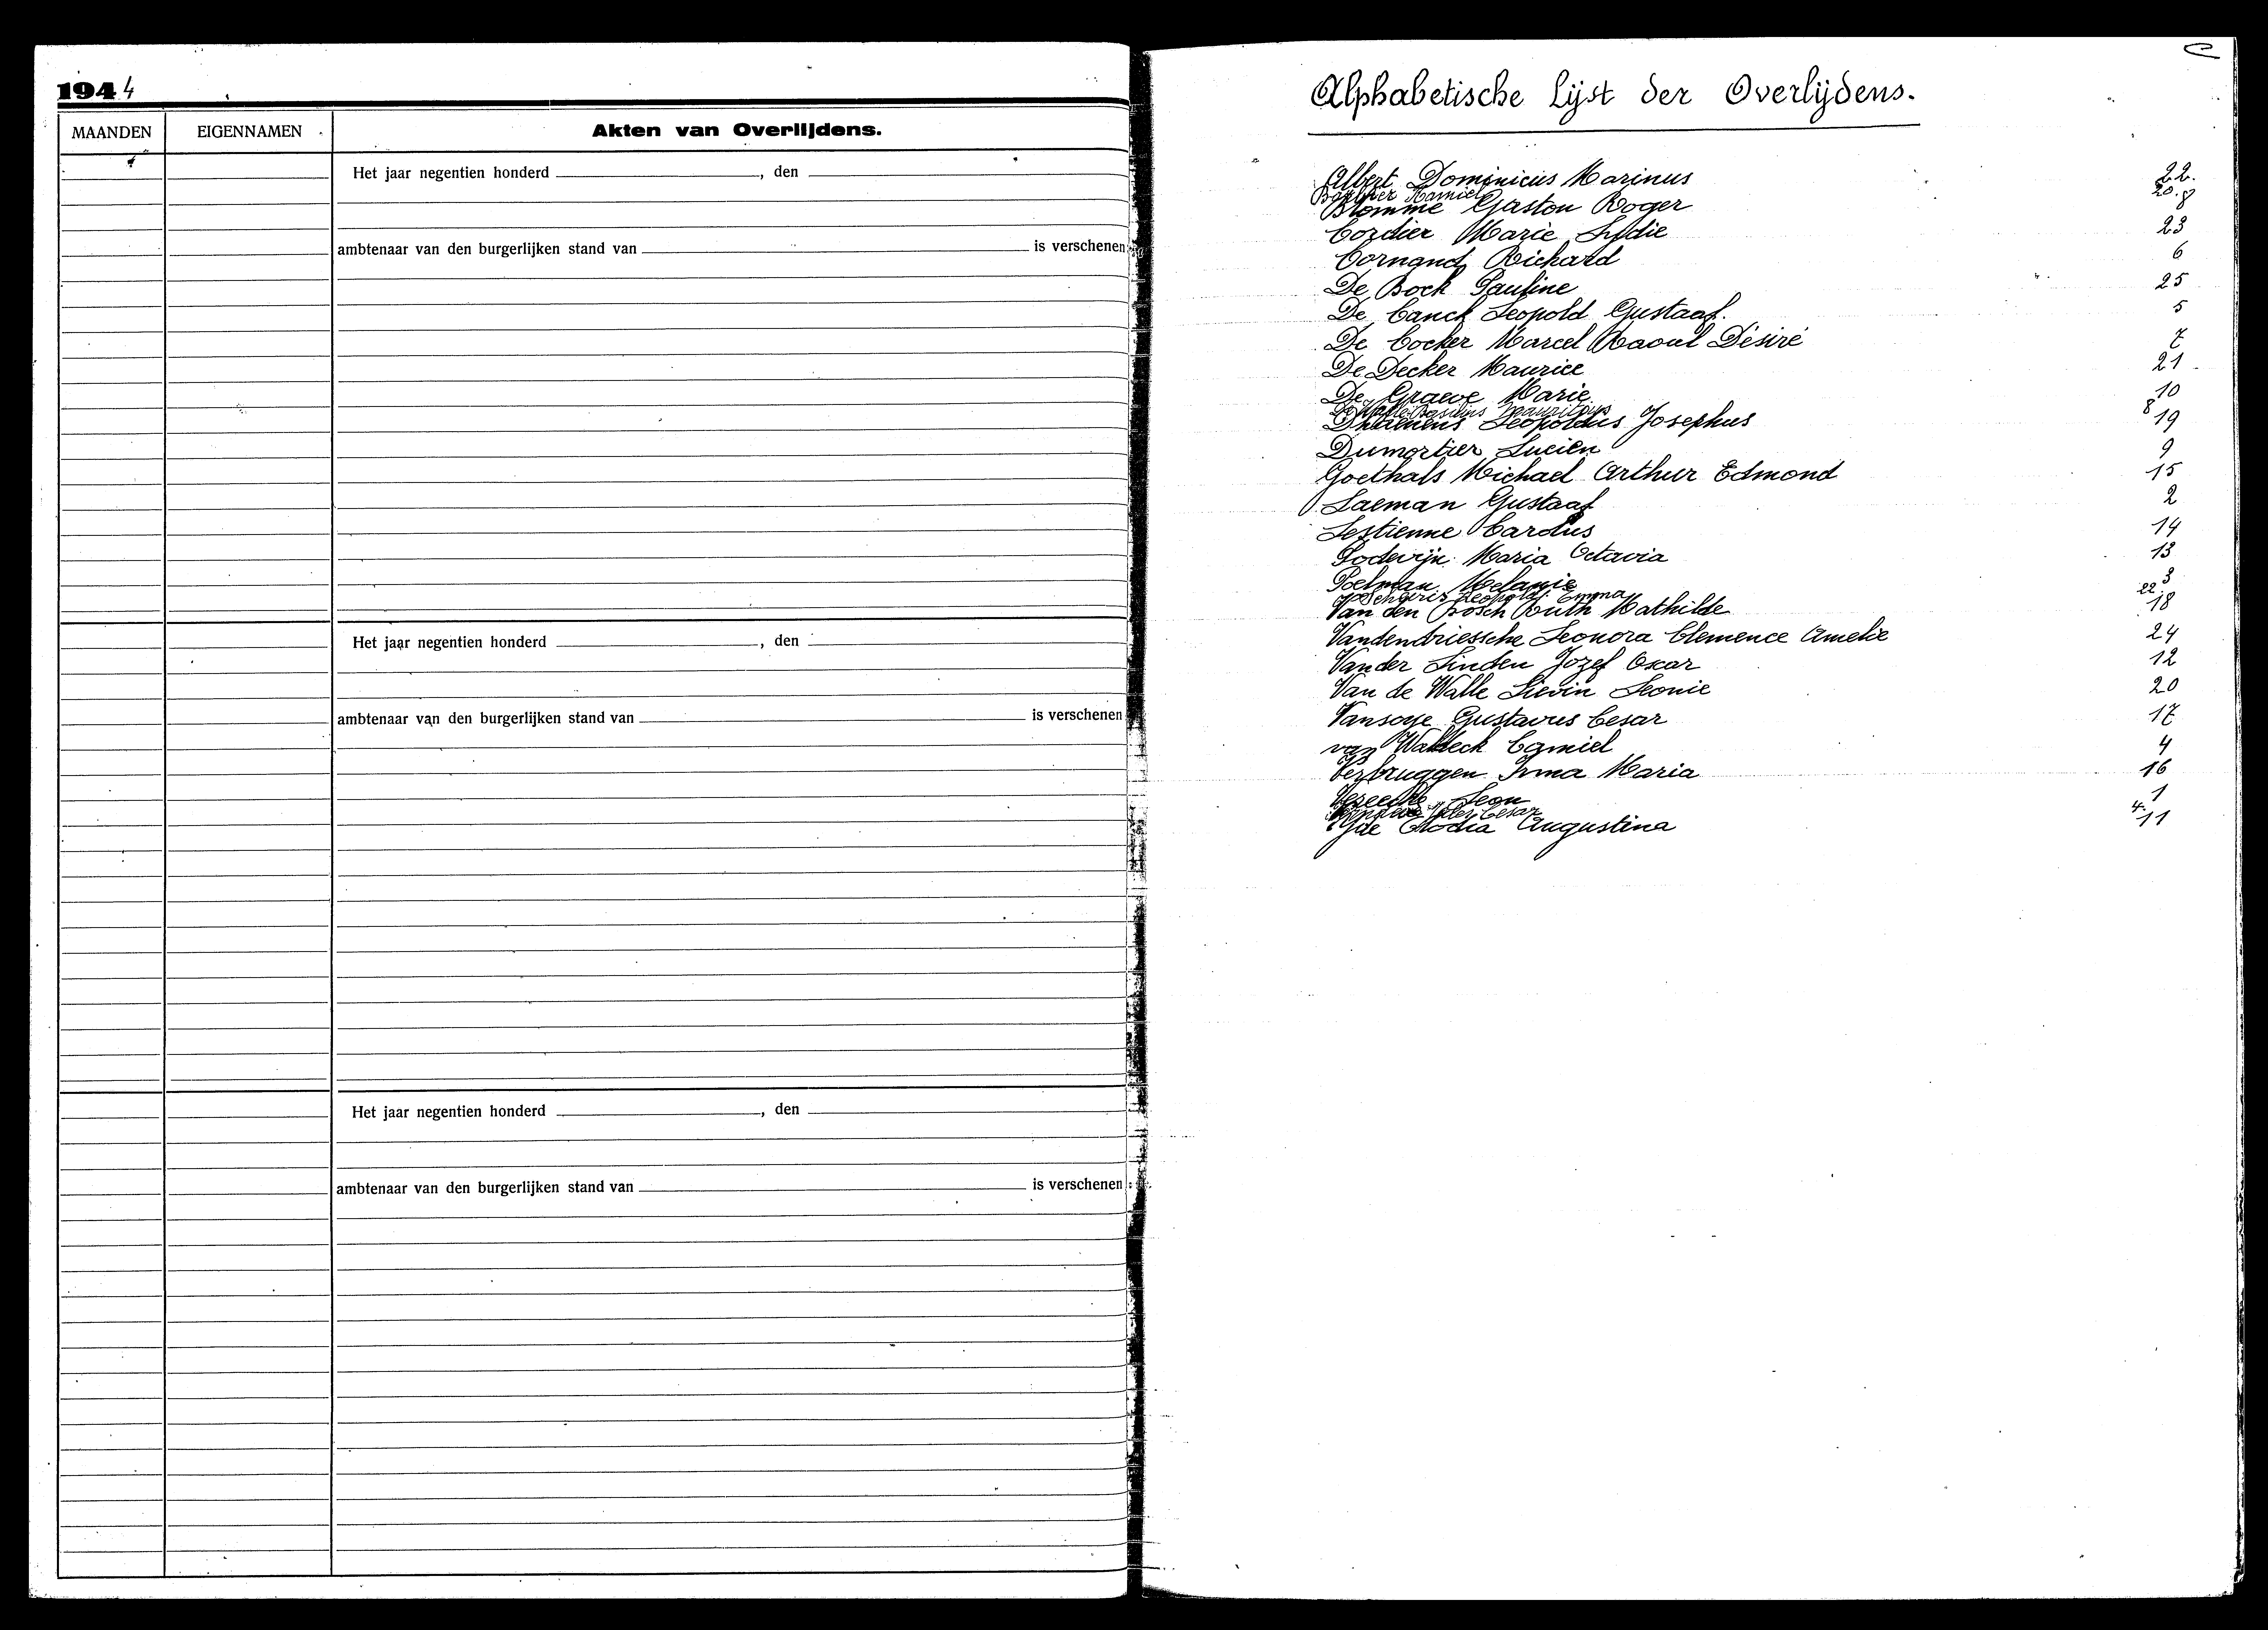 1944
MAANDEN EIGENNAMEN Akten van Overlijdens.
Het jaar negentien honderd , den
ambtenaar van den burgerlijken stand van is verschenen
Het jaar negentien honderd , den
ambtenaar van den burgerlijken stand van is verschenen
Het jaar negentien honderd , den
ambtenaar van den burgerlijken stand van is verschenen
Alphabetische Lijst der Overlijdens.
Albert Dominicus Marinus 22.
Kamiel 20.
Blomme Gaston Roger 8
Cordier Marie Lydie 23
Cornand Richard 6
De Bock Pauline 25
De Canck Leopold Gustaaf. 5
De Cocker Marcel Raoul Désiré 7
De Decker Maurice 21
De Graeve Marie 10
Basilius Mauritius 8
Dhaenens Leopoldus Josephus 19
Dumortier Lucien 9
Goethals Michael Arthur Edmond 15
Laeman Gustaaf 2
Lestienne Carolus 14
Lodewijk Maria Octavia 13
Poelman Melanie 3
Leopold Emma 22
Van den Bosch Ruth Mathilde 18
Vandendriessche Leonora Clemence Amelie 24
Vander Linden Jozef Oscar 12
Van de Walle Lievin Leonie 20
Vansoye Gustavus Cesar 17
van Walleck Camiel 4
Verbruggen Irma Maria 16
Leon 1
Jules Cesar 4.
Yde Elodia Augustina 11